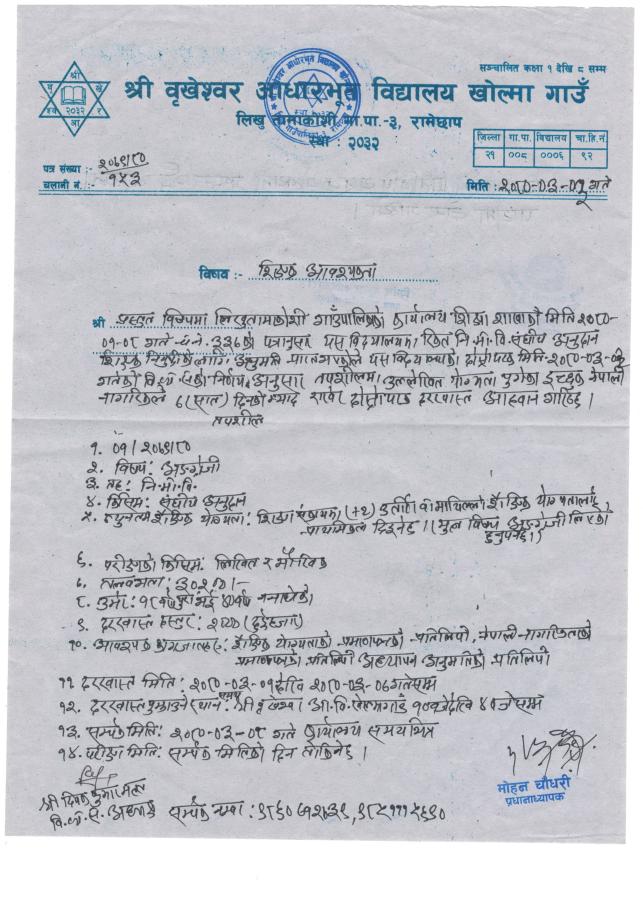 सञ्चालित कक्षा १ देखि ८ सम्म
श्री वृखेश्वर आधारभूत विद्यालय खोल्मा गाउँ
लिखु तामाकोशी गा.पा.-३, रामेछाप
स्था : २०३२
जिल्ला गा.पा. विद्यालय चा.हि.नं.
२१ ००८ ०००६ ९२
पत्र संख्या :- २०७९/८०
चलानी नं. :- १५३
मिति : २०८०-०३-०१ गते
विषय :- शिक्षक आवश्यकता
श्री प्रस्तुत विषयमा लिखु तामाकोशी गाउँपालिकाको कार्यालय शिक्षा शाखाको मिति २०८०-
०१-०८ गते च.नं. ३३६को पत्रानुसार यस विद्यालयमा रिक्त नि.मा.वि. संघीय अनुदान
शिक्षक नियुक्तिको लागि अनुमति प्राप्त यस विद्यालयको दोस्रोपटक मिति-२०८०-०३-०१
गतेको वि.व्य. सको निर्णय अनुसार तपशीलमा उल्लेखित योग्यता पुगेका इच्छुक नेपाली
नागरिकले ७(सात) दिनको म्याद राखेर दोस्रोपटक दरखास्त आह्वान गरिन्छ ।
तपशील
१. ०१/२०७९/८०
२. विषय: अङ्ग्रेजी
३. तह: नि.मा.वि.
४. किसिम: संघीय अनुदान
५. न्युनतम शैक्षिक योग्यता: शिक्षा (+२) उत्तीर्ण वा माथिल्लो शैक्षिक योग्यतालाई
प्राथमिकता दिइनेछ । (मूल विषय अङ्ग्रेजी लिएको
हुनुपर्नेछ।)
६. परीक्षाको किसिम: लिखित र मौखिक
७. तलबभत्ता: ३०२००।-
८. उमेर: १८ वर्ष पुरा भई ४० वर्ष ननाघेको
९. दरखास्त दस्तुर: २००० (दुई हजार)
१०. आवश्यक कागजातहरू: शैक्षिक योग्यताको प्रमाणपत्रको प्रतिलिपी, नेपाली नागरिकताको
प्रमाणपत्रको प्रतिलिपि अध्यापन अनुमतिको प्रतिलिपी
११ दरखास्त मिति: २०८०-०३-०१देखि २०८०-०३-०७गतेसम्म
१२. दरखास्त बुझाउने स्थान: श्री वृखेश्वर आ.वि. खोल्मागाउँ १० बजेदेखि ४ बजेसम्म
१३. सम्पर्क मिति: २०८०-०३-०८ गते कार्यालय समयभित्र
१४. परीक्षा मिति: सम्पर्क मितिको दिन तोकिनेछ ।
मोहन चौधरी
प्रधानाध्यापक
वि.व्य.स. अध्यक्ष सम्पर्क नम्बर: